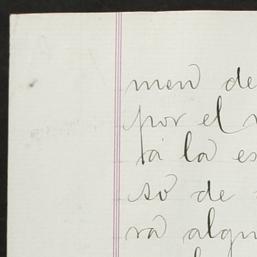 men de
por el
tá la es
só de
rá algu